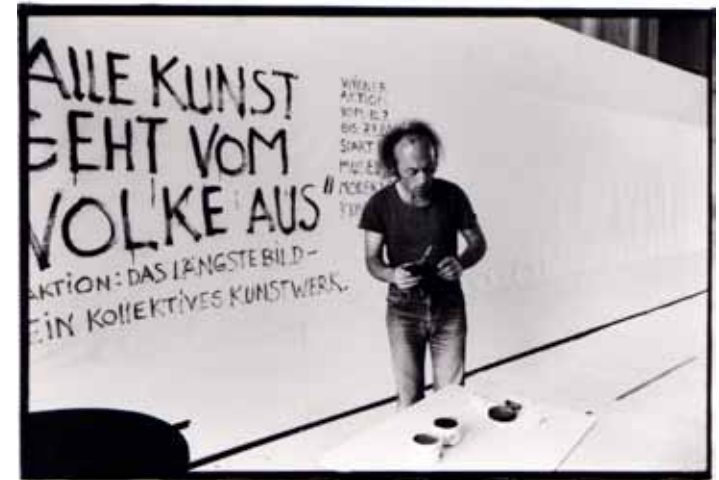 ALLE KUNST
GEHT VOM
VOLKE AUS"
AKTION: DAS LÄNGSTE BILD-
EIN KOLLEKTIVES KUNSTWERK.
WIENER
AKTION
VOM
BIS
START